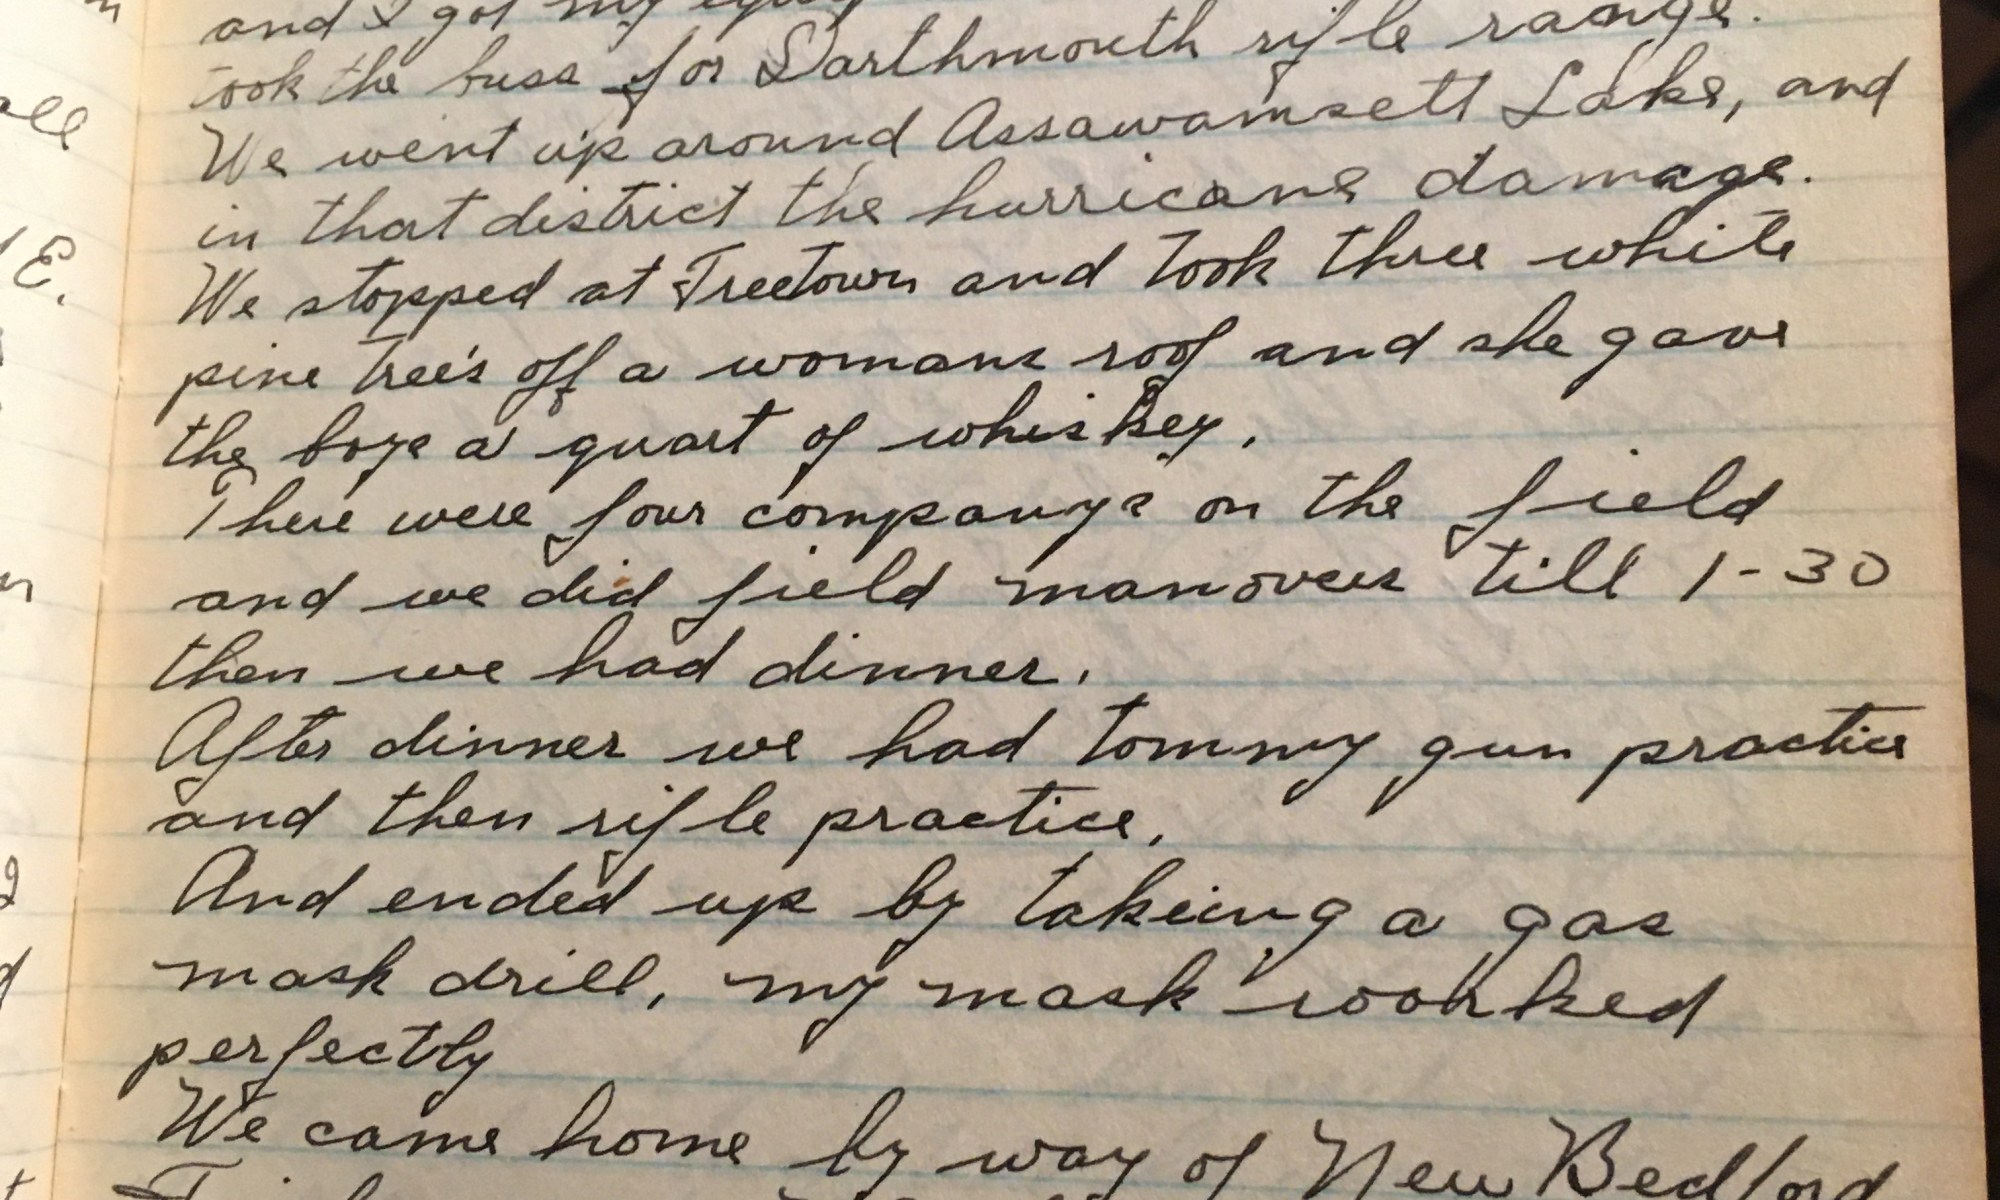 and I got my
took the buss for Darthmouth rifle range.
We went up around Assawamsett Lake, and
in that district the hurricane damage.
We stopped at Freetown and took three white
pine tree's off a womans roof and she gave
the boys a quart of whiskey.
There were four companys on the field
and we did field manovers till 1-30
then we had dinner.
After dinner we had tommy gun practice
and then rifle practice.
And ended up by takeing a gas
mask drill, my mask woorked
perfectly
We came home by way of New Bedford
all
E.